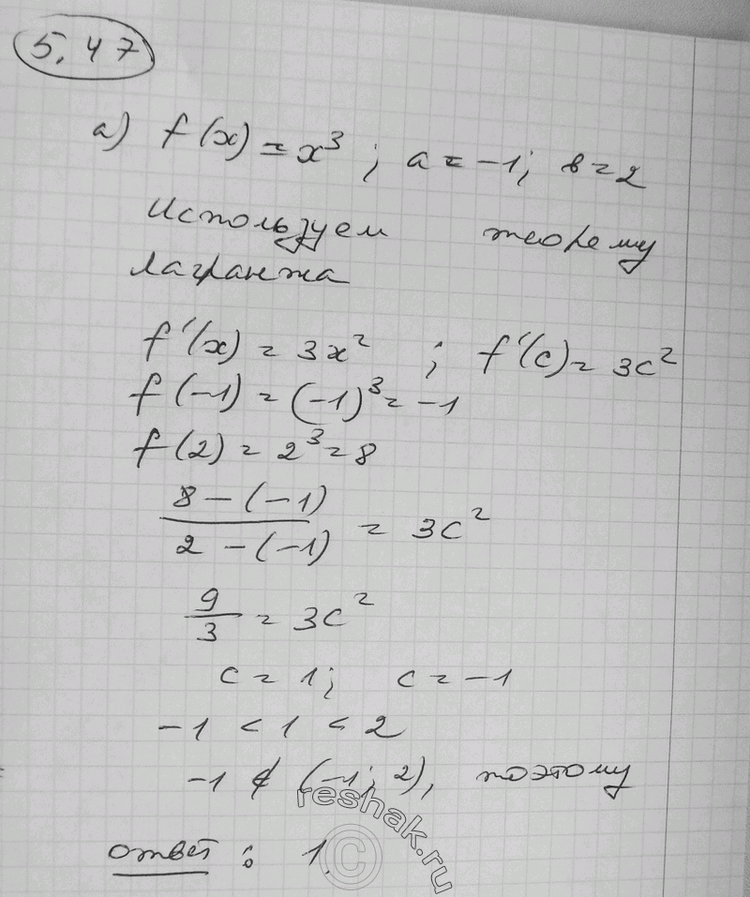 5.47
а) f(x) = x³; a = -1; b = 2
Используем теорему
Лагранжа
f'(x) = 3x²; f'(c) = 3c²
f(-1) = (-1)³ = -1
f(2) = 2³ = 8
(8 - (-1))/(2 - (-1)) = 3c²
9/3 = 3c²
c = 1; c = -1
-1 < 1 < 2
-1 ∉ (-1; 2), поэтому
ответ: 1.
reshak.ru
©